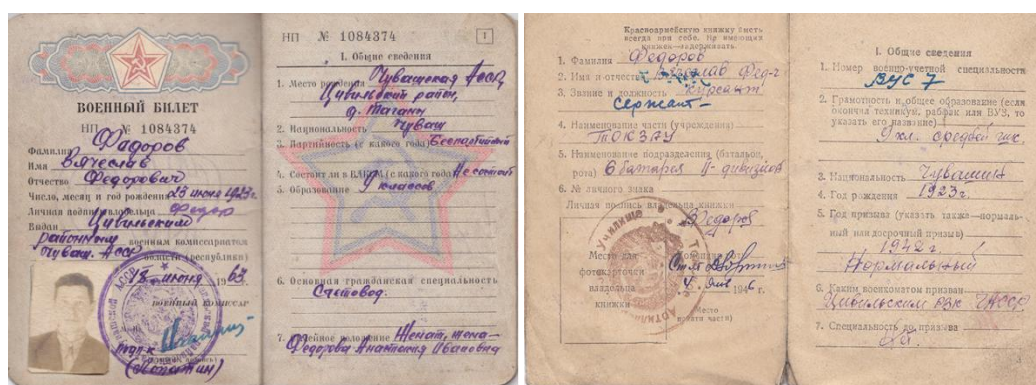 ВОЕННЫЙ БИЛЕТ
НП № 1084374
Фамилия Федоров
Имя Вячеслав
Отчество Федорович
Число, месяц и год рождения 23 июня 1923г.
Личная подпись владельца Федор
Выдан Цивильским
районным военным комиссариатом
Чуваш. АССР области (республики)
18 июня 1963
военный комиссар
НП № 1084374
1
I. Общие сведения
1. Место рождения Чувашская АССР,
Цивильский район,
2. Национальность Чуваш
3. Партийность (с какого года) Беспартийный
4. Состоит ли в ВЛКСМ (с какого года) Не состоит
5. Образование 9 классов
6. Основная гражданская специальность
Счетовод.
7. Семейное положение Женат, жена-
Федорова Анастасия Ивановна
Красноармейскую книжку иметь
всегда при себе. Не имеющих
книжек—задерживать.
1. Фамилия Федоров
2. Имя и отчество Вячеслав Фед-г
3. Звание и должность Курсант
Сержант-
4. Наименование части (учреждения)
ТОКЗАУ
5. Наименование подразделения (батальон,
рота) 6 батарея II- дивизион
6. № личного знака
Личная подпись владельца книжки
Федоров
Место для
фотокарточки
владельца
книжки
1946 г.
Место
печати части)
I. Общие сведения
1. Номер военно-учетной специальности
ВУС 7
2. Грамотность и общее образование (если
окончил техникум, рабфак или ВУЗ, то
указать его название)
9 кл. средней шк.
3. Национальность Чувашин
4. Год рождения 1923г.
5. Год призыва (указать также—нормаль-
ный или досрочный призыв)
1942 г
Нормальный
6. Каким военкоматом призван
Цивильским РВК ЧАССР
7. Специальность до призыва